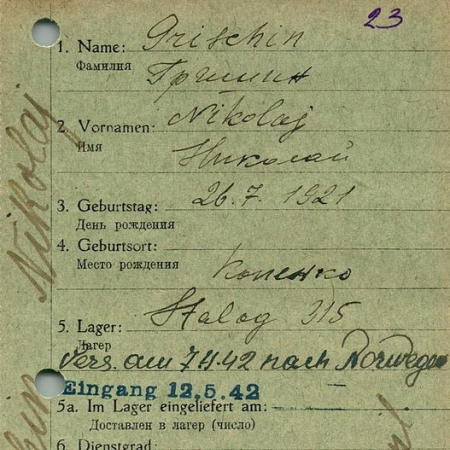 23
1. Name: Grischin
Фамилия Гришин
2. Vornamen: Nikolaj
Имя Николай
3. Geburtstag: 26.7.1921
День рождения
4. Geburtsort:
Место рождения Копенко
5. Lager: Stalag 315
Лагер
vers. am 7.4.42 nach Norwegen
Eingang 12.5.42
5a. Im Lager eingeliefert am:
Доставлен в лагер (число)
6. Dienstgrad:
Nikolaj